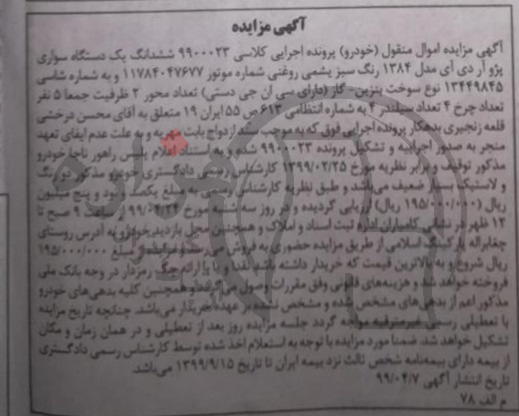 آگهی مزایده
آگهی مزایده اموال منقول (خودرو) پرونده اجرایی کلاسی ۹۹۰۰۰۲۳ ششدانگ یک دستگاه سواری
پژو آر دی آی مدل ۱۳۸۴ رنگ سبز یشمی روغنی شماره موتور ۱۱۷۸۴۰۴۷۶۷۷ و به شماره شاسی
۱۳۴۴۹۸۴۵ نوع سوخت بنزین- گاز (دارای سی ان جی دستی) تعداد محور ۲ ظرفیت جمعا ۵ نفر
تعداد چرخ ۴ تعداد سیلندر ۴ به شماره انتظامی ۶۱۳ ص ۵۵ ایران ۱۹ متعلق به آقای محسن درخشی
قلعه زنجیری بدهکار پرونده اجرایی فوق که به موجب سند ازدواج بابت مهریه و به علت عدم ایفای تعهد
منجر به صدور اجرائیه و تشکیل پرونده ۹۹۰۰۰۲۳ شده و به استناد اعلام پلیس راهور ناجا خودرو
مذکور توقیف و برابر نظریه مورخ ۱۳۹۹/۰۲/۲۵ کارشناس رسمی دادگستری خودرو مذکور دو رنگ
و لاستیک بسیار ضعیف می‌باشد و طبق نظریه کارشناس رسمی به مبلغ یکصد و نود و پنج میلیون
ریال (۱۹۵/۰۰۰/۰۰۰ ریال) ارزیابی گردیده و در روز سه‌شنبه مورخ ۹۹/۰۴/۲۴ از ساعت ۹ صبح تا
۱۲ ظهر در نشانی کامیاران اداره ثبت اسناد و املاک و همچنین محل بازدید خودرو به آدرس روستای
چغابراله پارکینگ اسلامی از طریق مزایده حضوری به فروش می‌رسد و مزایده از مبلغ ۱۹۵/۰۰۰/۰۰۰
ریال شروع و به بالاترین قیمت که خریدار داشته باشد نقدا و با ارائه چک رمزدار در وجه بانک ملی
فروخته خواهد شد و هزینه‌های قانونی وفق مقررات وصول می‌گردد و همچنین کلیه بدهی‌های خودرو
مذکور اعم از بدهی‌های مشخص شده و مشخص نشده بر عهده خریدار می‌باشد. چنانچه تاریخ مزایده
با تعطیلی رسمی غیرمترقبه مواجه گردد جلسه مزایده روز بعد از تعطیلی و در همان زمان و مکان
تشکیل خواهد شد. ضمنا مورد مزایده با توجه به استعلام اخذ شده توسط کارشناس رسمی دادگستری
از بیمه دارای بیمه‌نامه شخص ثالث نزد بیمه ایران تا تاریخ ۱۳۹۹/۹/۱۵ می‌باشد.
تاریخ انتشار آگهی ۹۹/۰۴/۷
م الف ۷۸